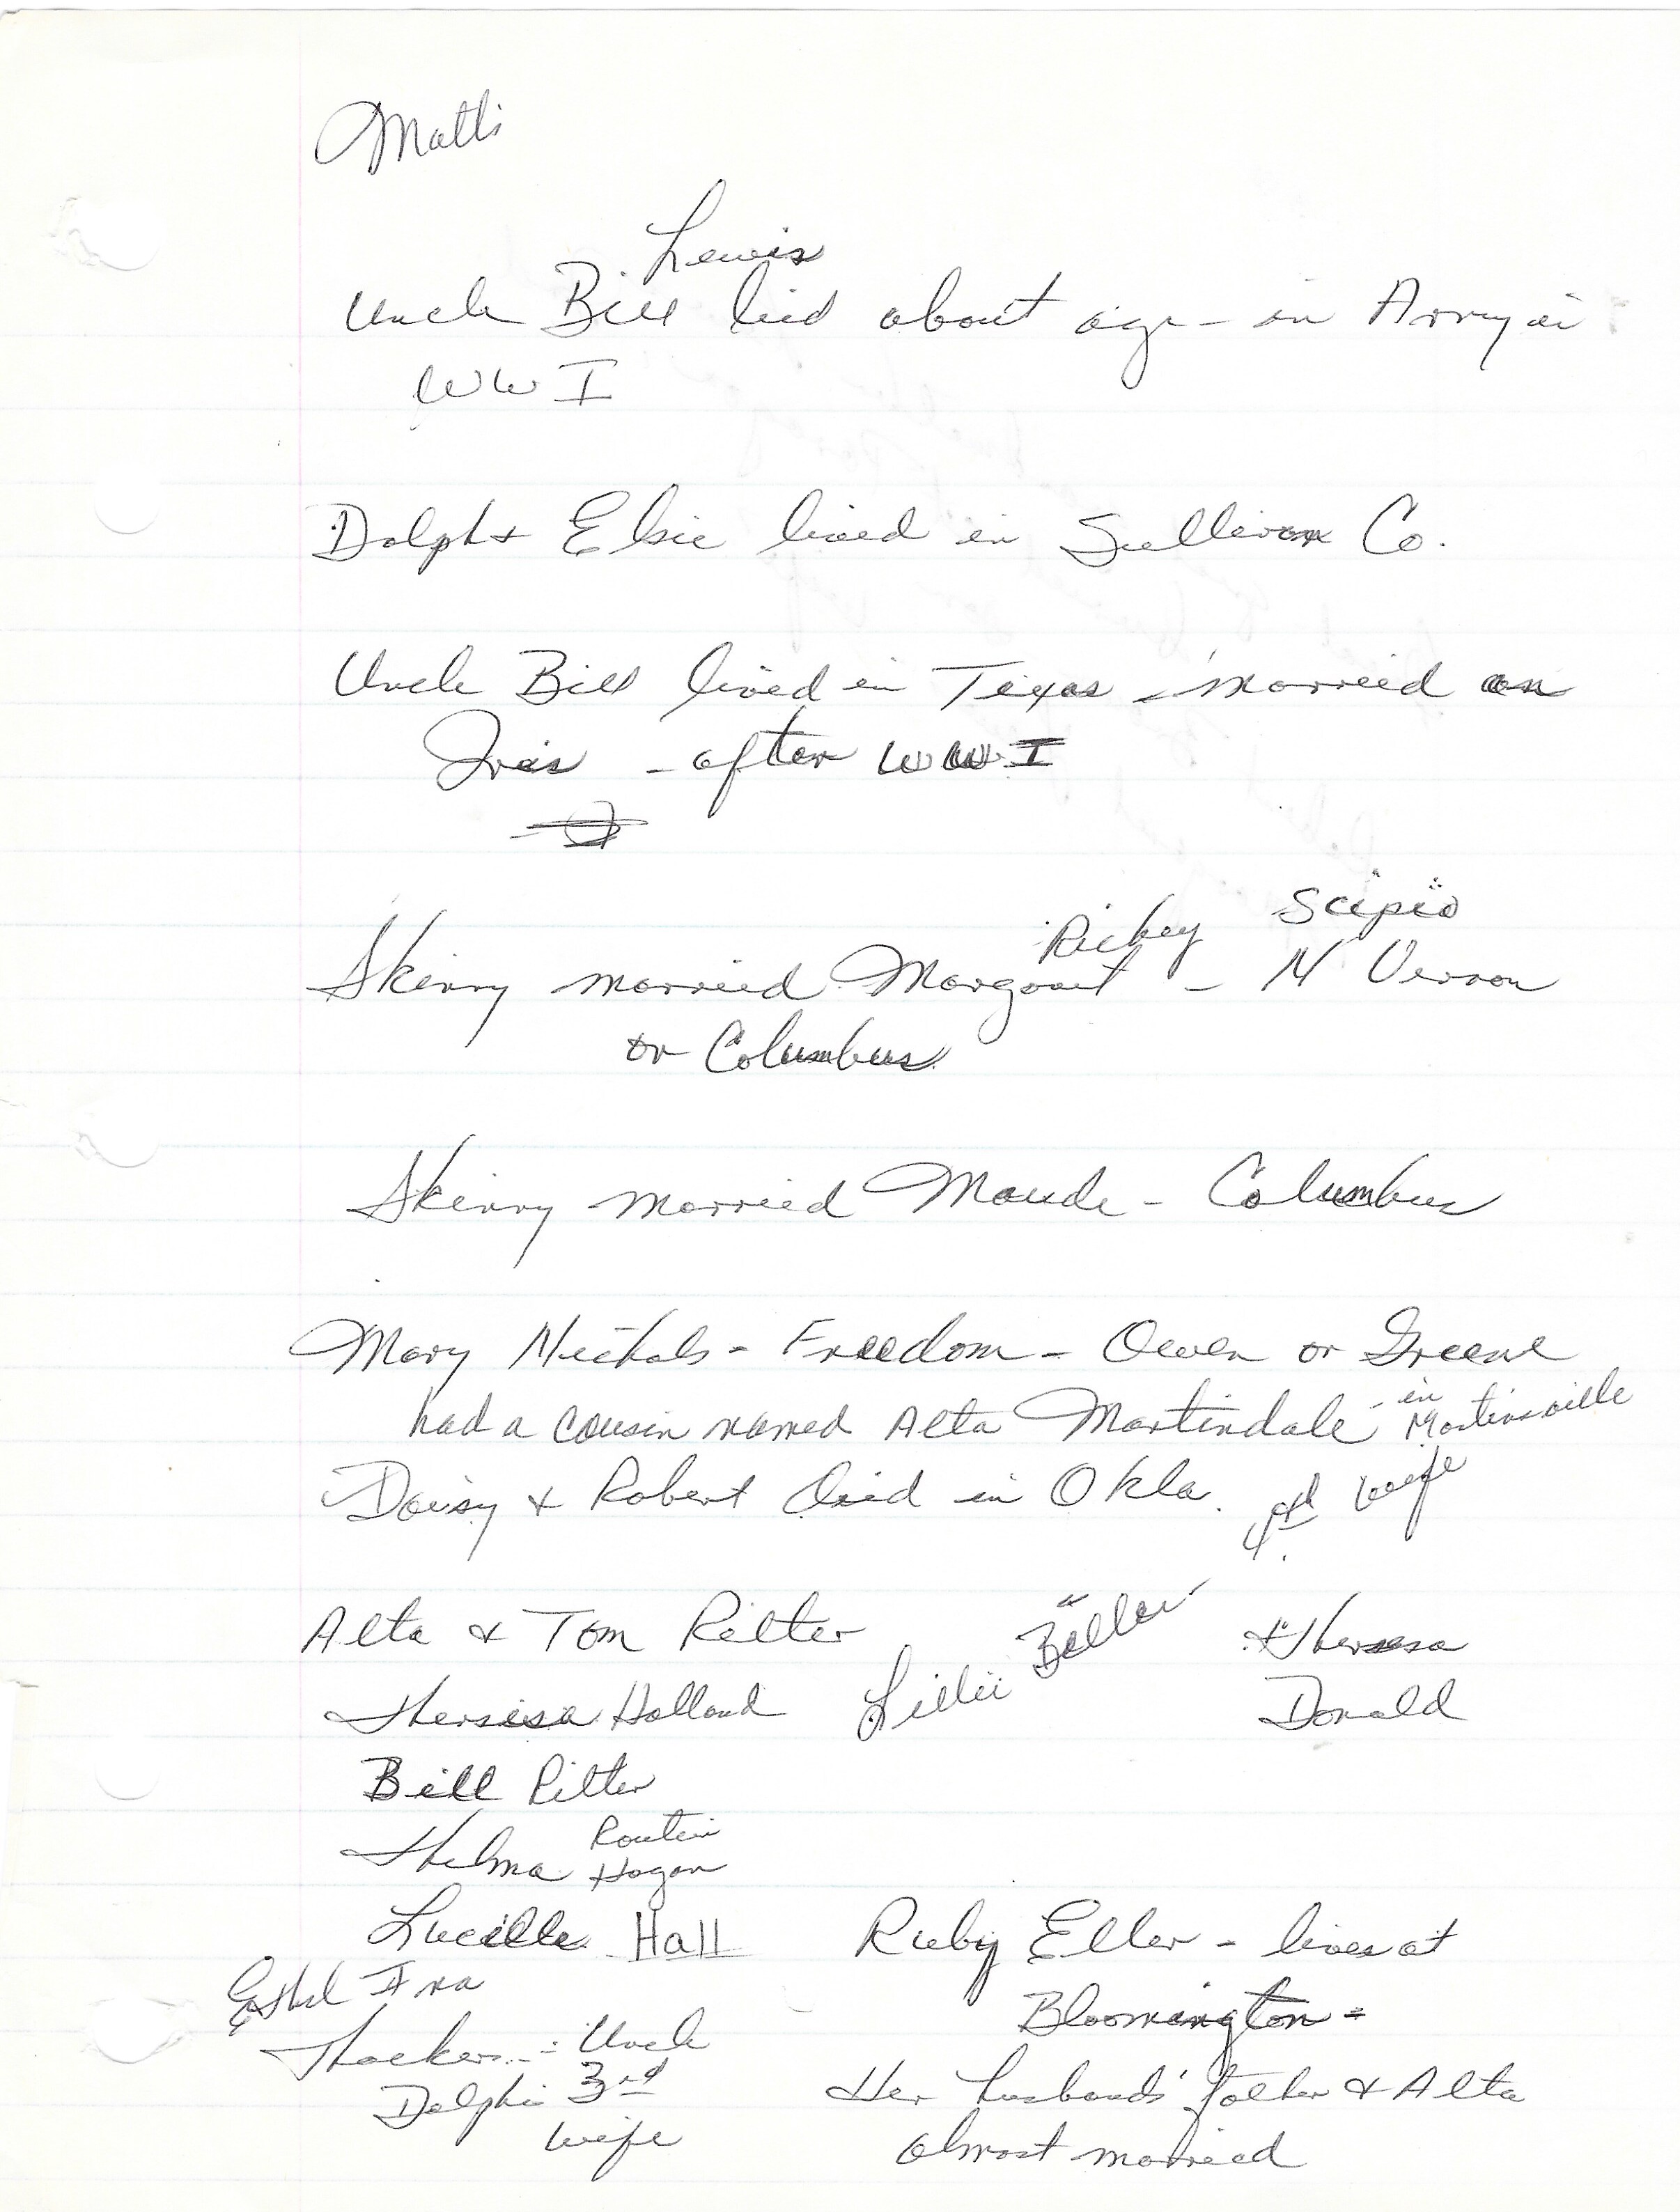 Matti
Lewis
Uncle Bill lied about age - in Army in
WW I
Dolph & Elsie lived in Sullivan Co.
Uncle Bill lived in Texas - married an
Iris - after WW I
Richey Scipio
Skinny married Margaret - N Vernon
or Columbus
Skinny married Maude - Columbus
Mary Nichols - Freedom - Owen or Greene
had a cousin named Alta Martindale - in Martinsville
Daisy & Robert died in Okla.
4th wife
Alta & Tom Ritter
Lillie Biller
Theresa
Donald
Theresa Holland
Bill Ritter
Thelma Routin
Hogan
Lucille Hall
Ethel Ina
Thacker - Uncle
Dolphs 3rd
wife
Ruby Eller - lives at
Bloomington -
Her husbands' father & Alta
almost married